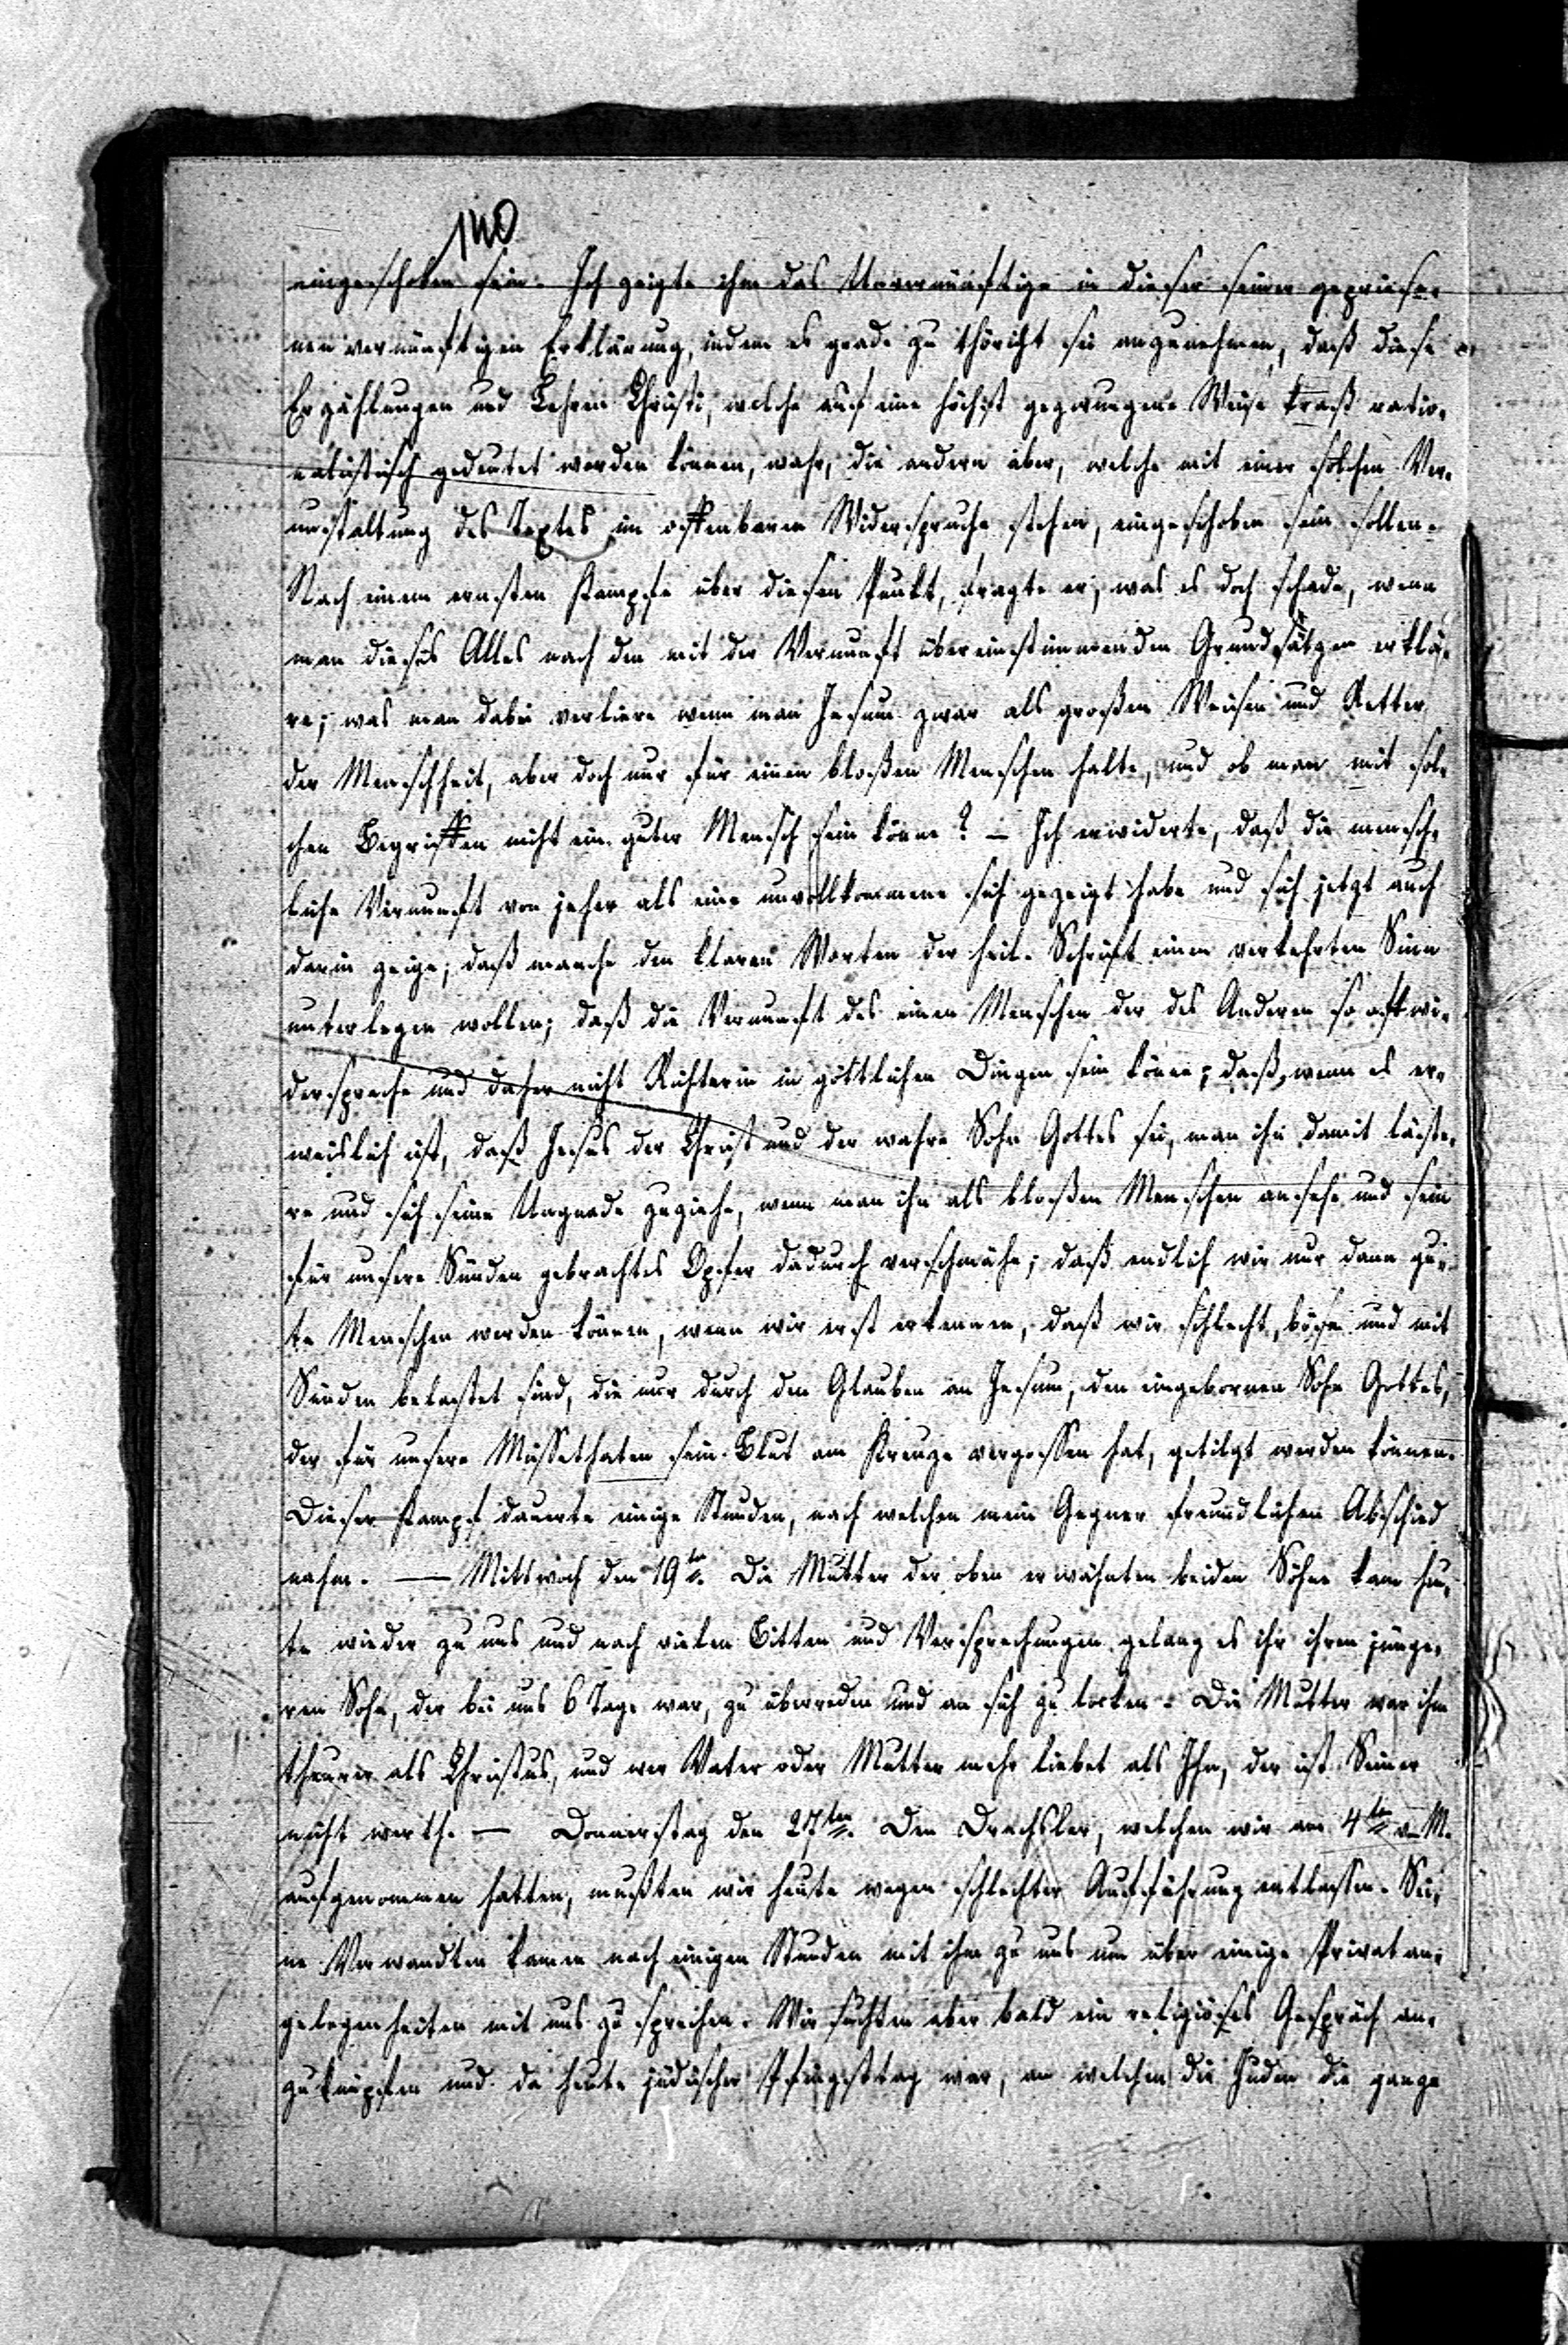 140
eingeschoben sein. Ich zeigte ihm das Unvernünftige in dieser seiner gepriese-
nen vernünftigen Erklärung, indem es grade zu thöricht sei anzunehmen, daß diese
Erzählungen und Lehren Christi, welche auf eine höchst gezwungene Weise kraß ratio-
nalistisch gedeutet werden können, wahr, die andern aber, welche mit einer solchen Ver-
unstaltung des Textes im offenbaren Widerspruche stehen, eingeschoben sein sollen.
Nach einem ernsten Kampfe über diesen Punkt, fragte er, was es doch schade, wenn
man dieses Alles nach den mit der Vernunft übereinstimmenden Grundsätzen erklä-
re; was man dabei verliere wenn man Jesum zwar als großen Weisen und Retter
der Menschheit, aber doch nur für einen bloßen Menschen halte, und ob man mit sol-
chen Begriffen nicht ein guter Mensch sein könne? – Ich erwiderte, daß die mensch-
liche Vernunft von jeher als eine unvollkommene sich gezeigt habe und sich jetzt auch
darin zeige, daß manche den klaren Worten der heil. Schrift einen verkehrten Sinn
unterlegen wollen; daß die Vernunft des einen Menschen der des Anderen so oft wi-
derspreche und daher nicht Richterin in göttlichen Dingen sein könne; daß, wenn es er-
weislich ist, daß Jesus der Christ und der wahre Sohn Gottes sei, man ihn damit läste-
re und sich seine Ungnade zuziehe, wenn man ihn als bloßen Menschen ansehe und sein
für unsere Sünden gebrachtes Opfer dadurch verschmähe; daß endlich wir nur dann gu-
te Menschen werden können, wenn wir erst erkennen, daß wir schlecht, böse und mit
Sünden belastet sind, die nur durch den Glauben an Jesum, den eingebornen Sohn Gottes,
der für unsere Missethaten sein Blut am Kreuze vergossen hat, getilgt werden können.
Dieser Kampf dauerte einige Stunden, nach welchen mein Gegner freundlichen Abschied
nahm. — Mittwoch den 19ten. Die Mutter der oben erwähnten beiden Söhne kam heu-
te wieder zu uns und nach vielen Bitten und Versprechungen gelang es ihr ihren jünge-
ren Sohn, der bei uns 6 Tage war, zu überreden und an sich zu locken. Die Mutter war ihm
theurer als Christus, und wer Vater oder Mutter mehr liebet als Ihn, der ist Seiner
nicht werth. — Donnerstag den 27ten. Den Drechsler, welchen wir am 4ten v. M.
aufgenommen hatten, mußten wir heute wegen schlechter Aufführung entlassen. Sei-
ne Verwandten kamen nach einigen Stunden mit ihm zu uns um über einige Privatan-
gelegenheiten mit uns zu sprechen. Wir suchten aber bald ein religiöses Gespräch an-
zuknüpfen und da heute jüdischer Pfingsttag war, an welchem die Juden die ganze